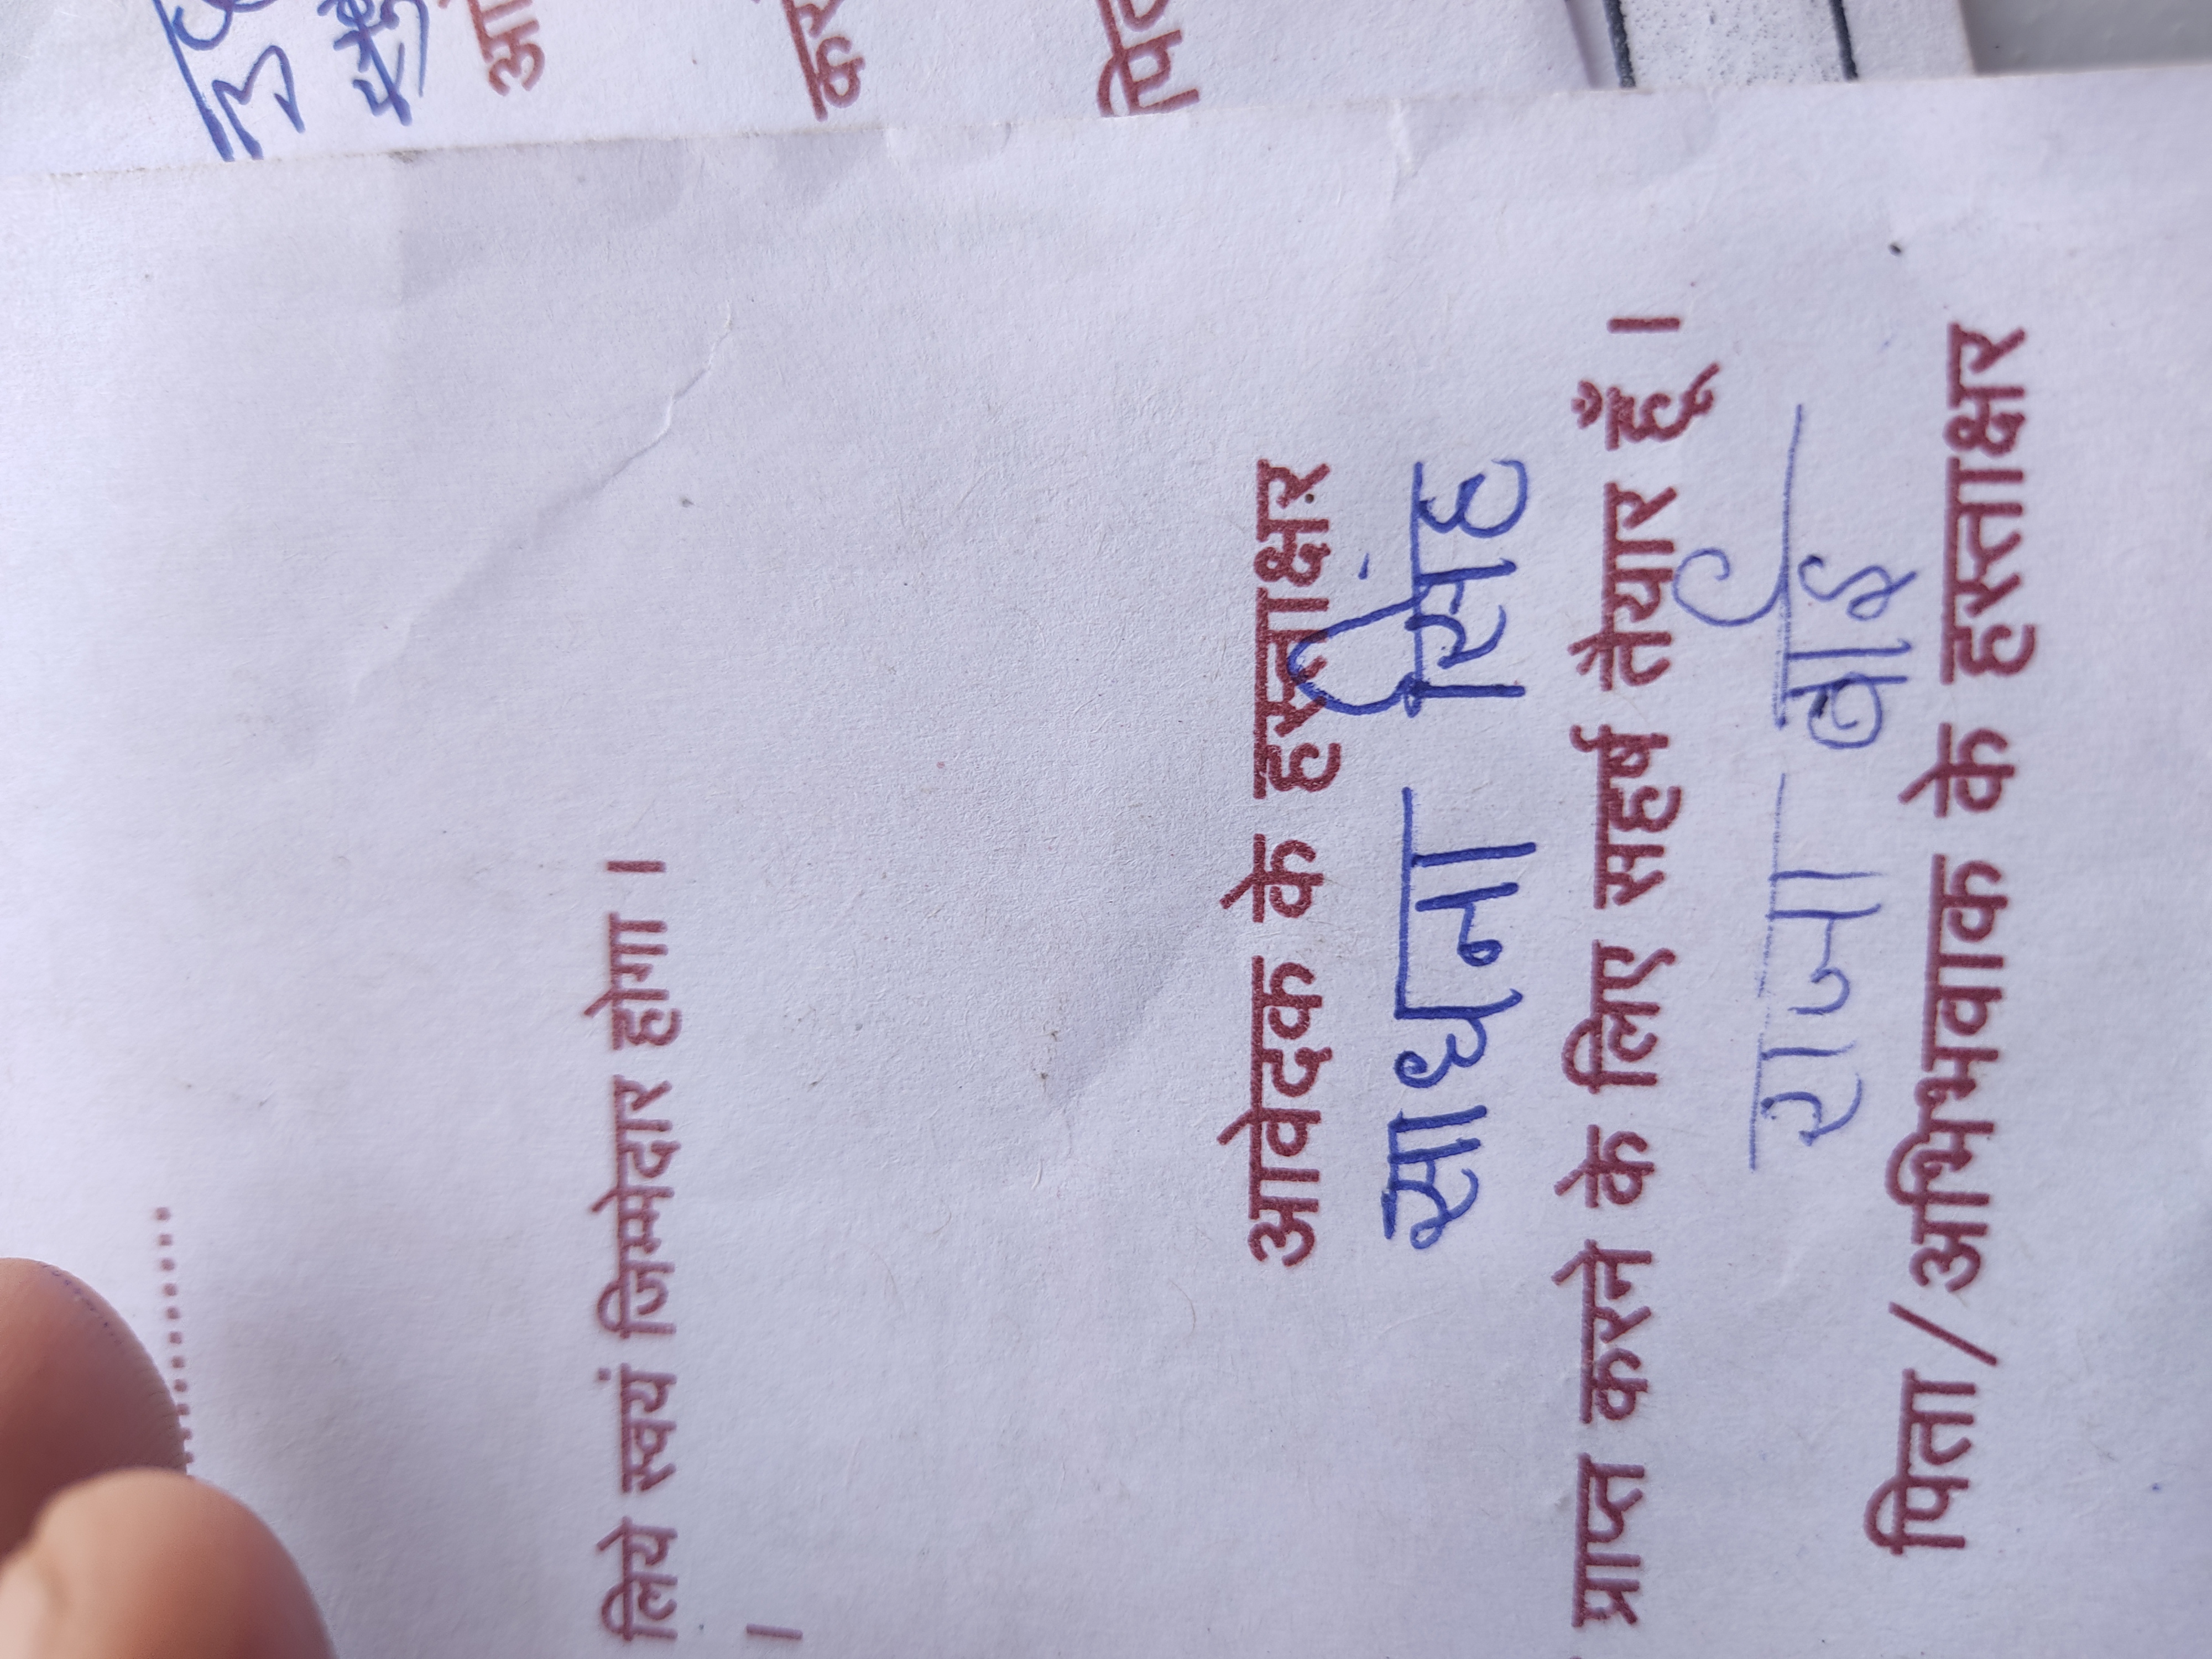 लिये स्वयं जिम्मेदार होगा ।
।
आवेदक के हस्ताक्षर
साधना सिंह
प्राप्त करने के लिए सहर्ष तैयार हूँ ।
राजा बाई
पिता / अभिभावक के हस्ताक्षर